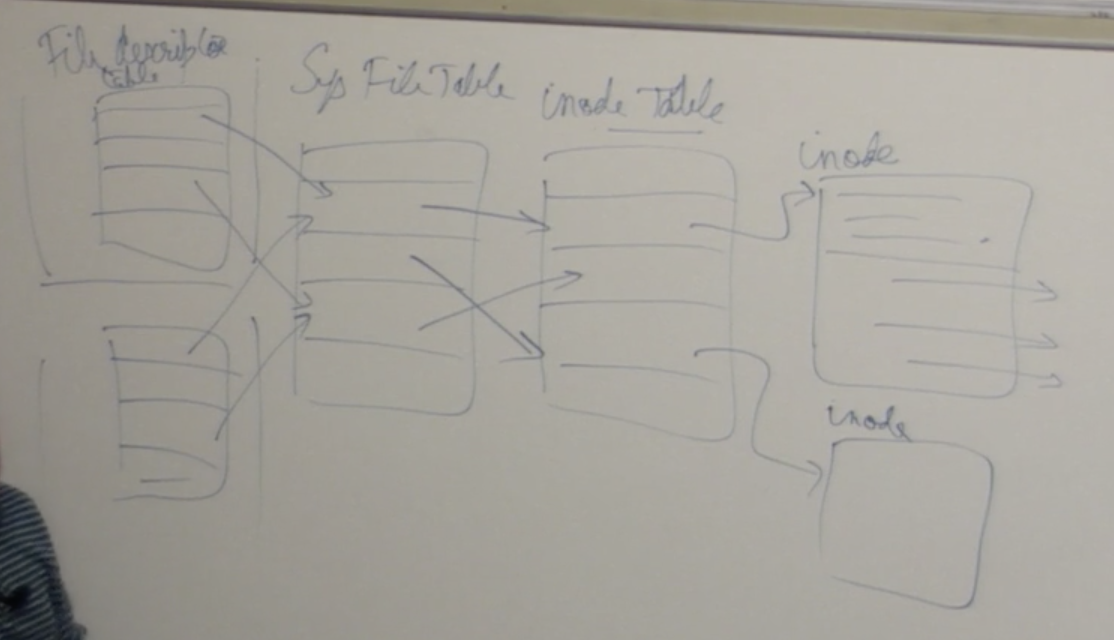 File descriptor
table
Sys File Table
inode Table
inode
inode